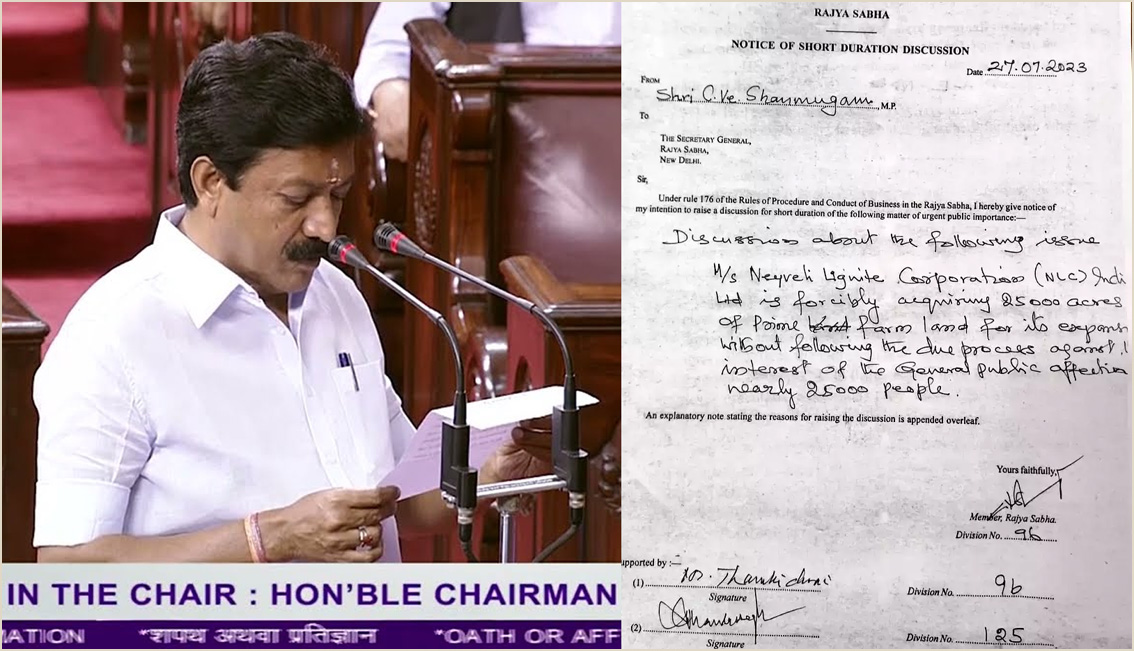 IN THE CHAIR : HON'BLE CHAIRMAN
MATION *शपथ अथवा प्रतिज्ञान *OATH OR AFF
RAJYA SABHA
NOTICE OF SHORT DURATION DISCUSSION
Date 27.07.2023
FROM
Shri C.Ve. Shanmugam, M.P.
To
THE SECRETARY GENERAL,
RAJYA SABHA,
NEW DELHI.
Sir,
Under rule 176 of the Rules of Procedure and Conduct of Business in the Rajya Sabha, I hereby give notice of
my intention to raise a discussion for short duration of the following matter of urgent public importance:—
Discussion about the following issue
M/s Neyveli Lignite Corporation (NLC) Indi
Ltd is forcibly acquiring 25000 acres
of Prime farm land for its expans
without following the due process against
interest of the General public affectin
nearly 25000 people.
An explanatory note stating the reasons for raising the discussion is appended overleaf.
Yours faithfully,
Member, Rajya Sabha.
Division No. 96
upported by :—
(1)
Signature
Division No. 96
(2)
Signature
Division No. 125